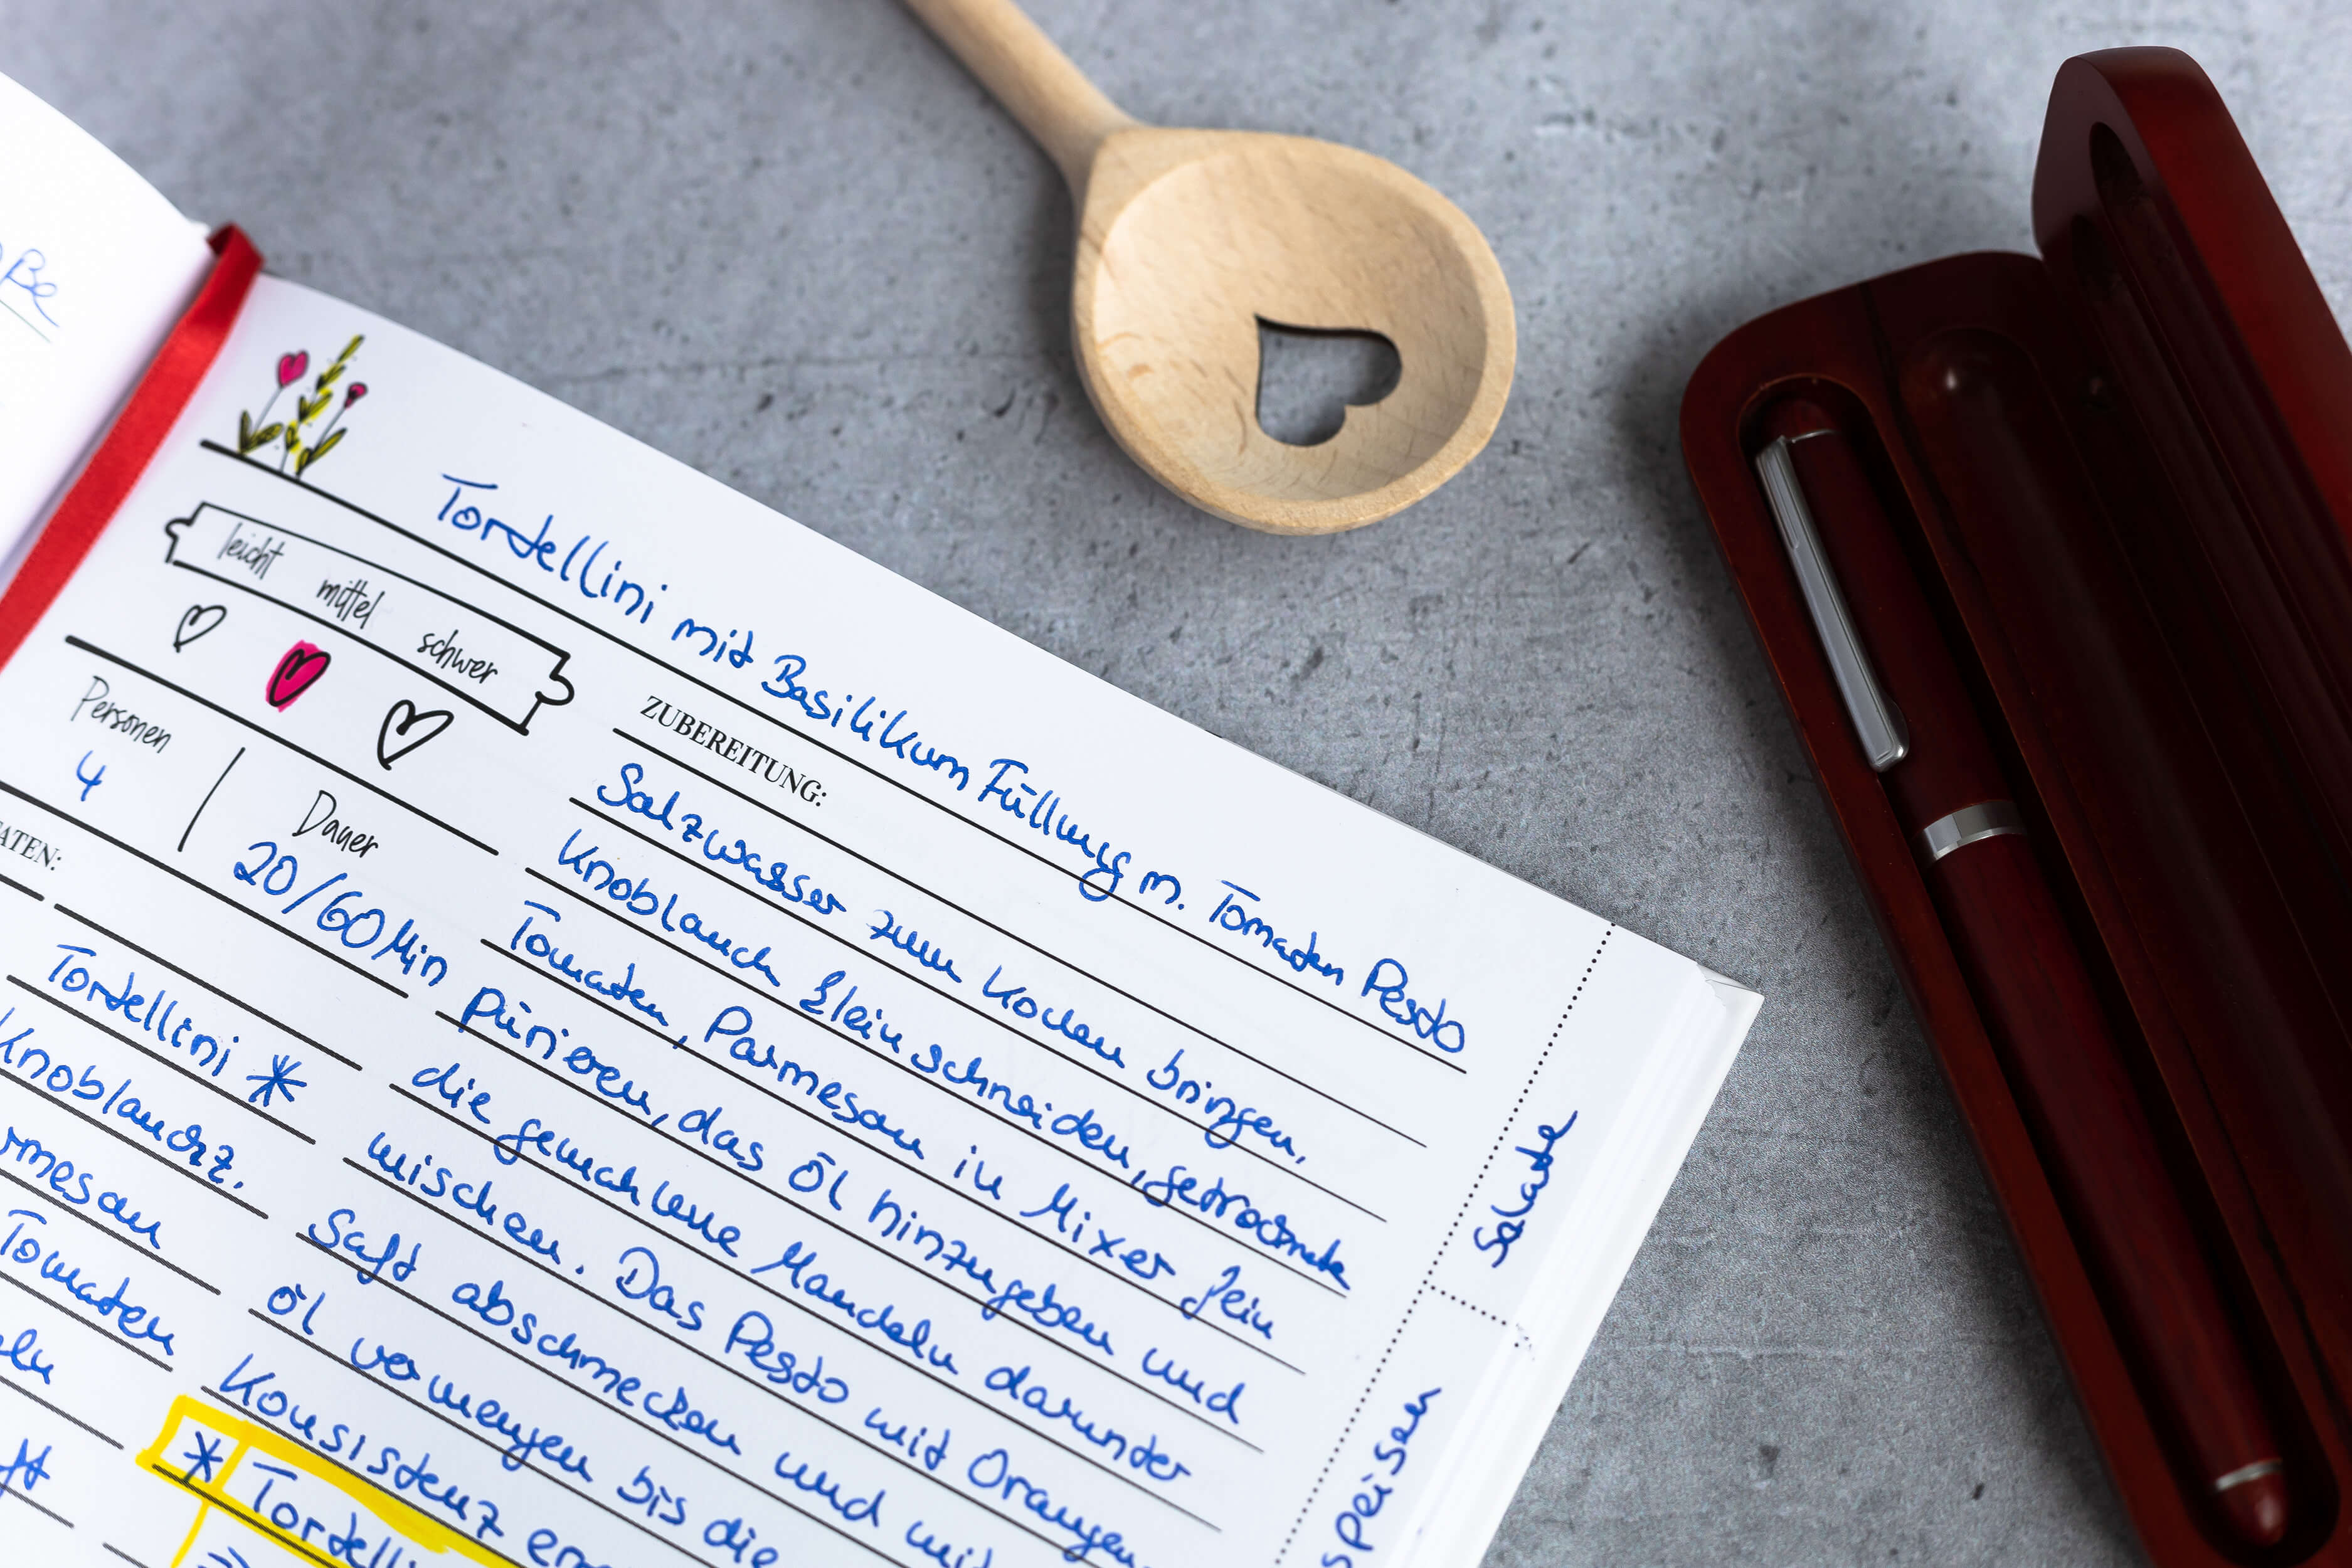 Tortellini mit Basilikum Füllung m. Tomaten Pesto
leicht mittel schwer
Personen
4
Dauer
20/60 Min
Tortellini *
Knoblauchz.
Tomaten
ZUBEREITUNG:
Salzwasser zum Kochen bringen,
Knoblauch klein schneiden, getrocknete
Tomaten, Parmesan in Mixer fein
pürieren, das Öl hinzugeben und
die gemahlene Mandeln darunter
mischen. Das Pesto mit Orangen
Saft abschmecken und mit
Öl vermengen bis die
Konsistenz
*
Salate